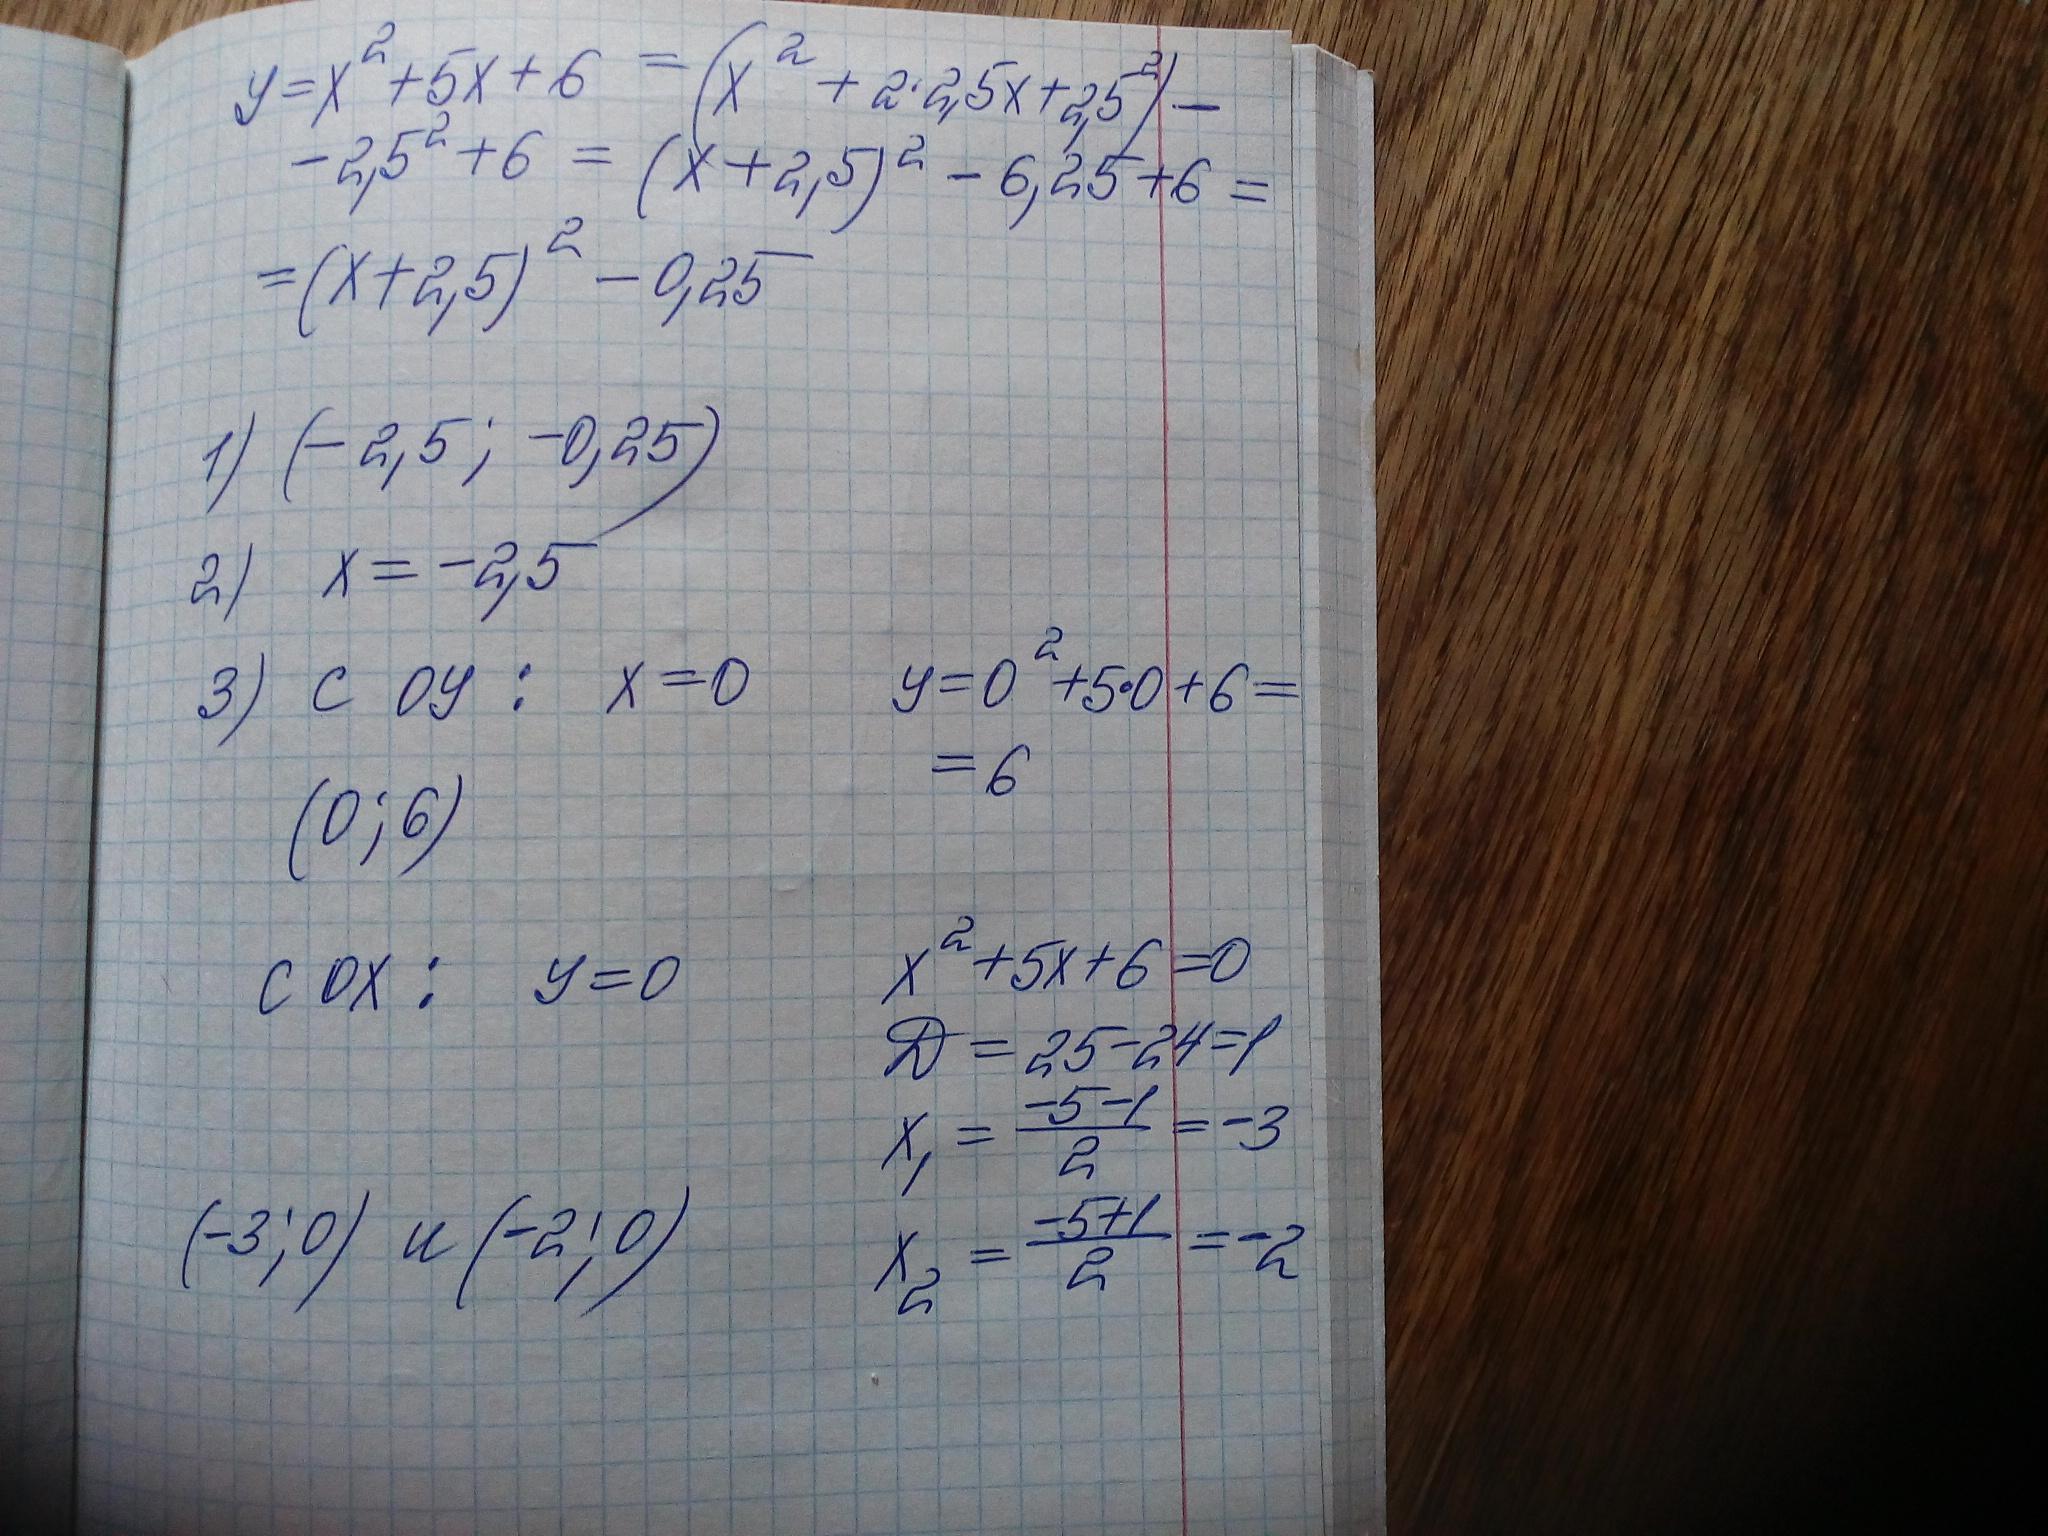 y=x²+5x+6 = (x²+2·2,5x+2,5²)-
-2,5²+6 = (x+2,5)²-6,25+6=
=(x+2,5)²-0,25
1) (-2,5; -0,25)
2) x=-2,5
3) с оу: x=0 y=0²+5·0+6=
=6
(0;6)
с ох: y=0 x²+5x+6=0
D=25-24=1
x₁ = (-5-1)/2 = -3
(-3;0) и (-2;0) x₂ = (-5+1)/2 = -2